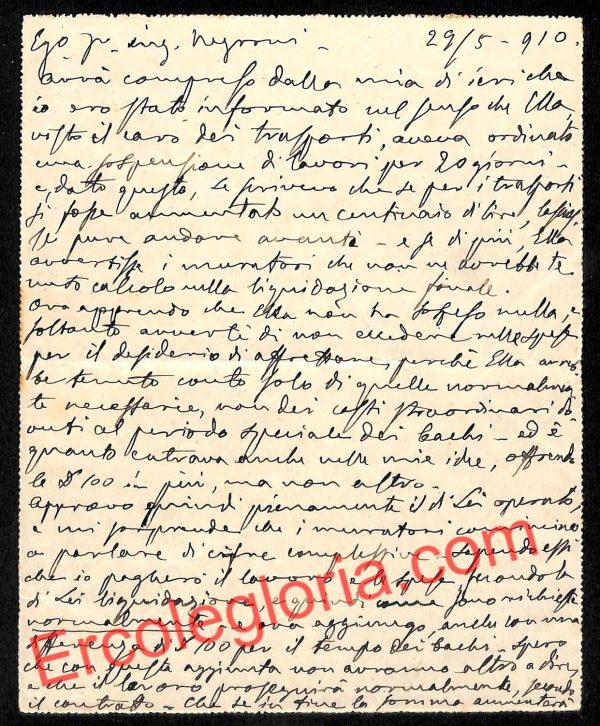 Eg. Sr. ing. Negroni - 29/5 - 910.
avrà compreso dalla mia di ieri che
io ero stato informato nel senso che Ella,
visto il caro dei trasporti, aveva ordinato
una sospensione di lavori per 20 giorni -
e, dato questo, Le scrivevo che se per i trasporti
si fosse aumentato un centinaio di lire,
se pure andare avanti - e se di più, Ella
avvertisse i muratori che non ne avrebbe te
nuto calcolo nella liquidazione finale.
Ora apprendo che Ella non ha sospeso nulla, e
soltanto avvertì di non eccedere nelle spese
per il desiderio di affrettare, perchè Ella avreb
be tenuto conto solo di quelle normalmen
te necessarie, non dei costi straordinari do
vuti al periodo speciale dei bachi - ed è
quanto entrava anche nelle mie idee, offrendo
le £ 100 in più, ma non altro.
Approvo quindi pienamente il di Lei operato,
e mi sorprende che i muratori comincino
a parlare di cifre complessive - sapendo essi
che io pagherò il lavoro e le spese secondo la
di Lei liquidazione, sono richieste
normalmente e ora aggiungo, anche con una
differenza di £ 100 per il tempo dei bachi - Spero
che con questa aggiunta non avranno altro a dire
e che il lavoro proseguirà normalmente, secondo
il contratto - Che se in fine la somma aumentasse
Ercolegloria.com